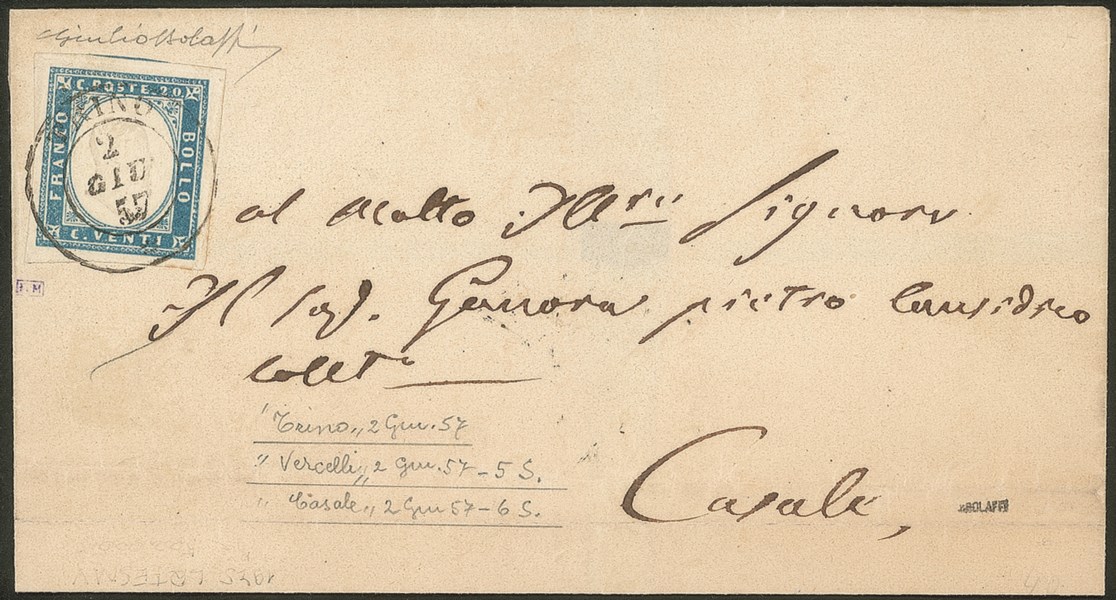 Giulio Bolaffi
C. POSTE. 20
FRANCO
BOLLO
C. VENTI
TRINO
2
GIU
57
al Molto Ill.re Signore
Il Sig. Genova pietro Causidico
Collt.o
Casale,
Trino,, 2 Giu. 57
" Vercelli,, 2 Giu. 57 - 5 S.
" Casale,, 2 Giu 57 - 6 S.
BOLAFFI